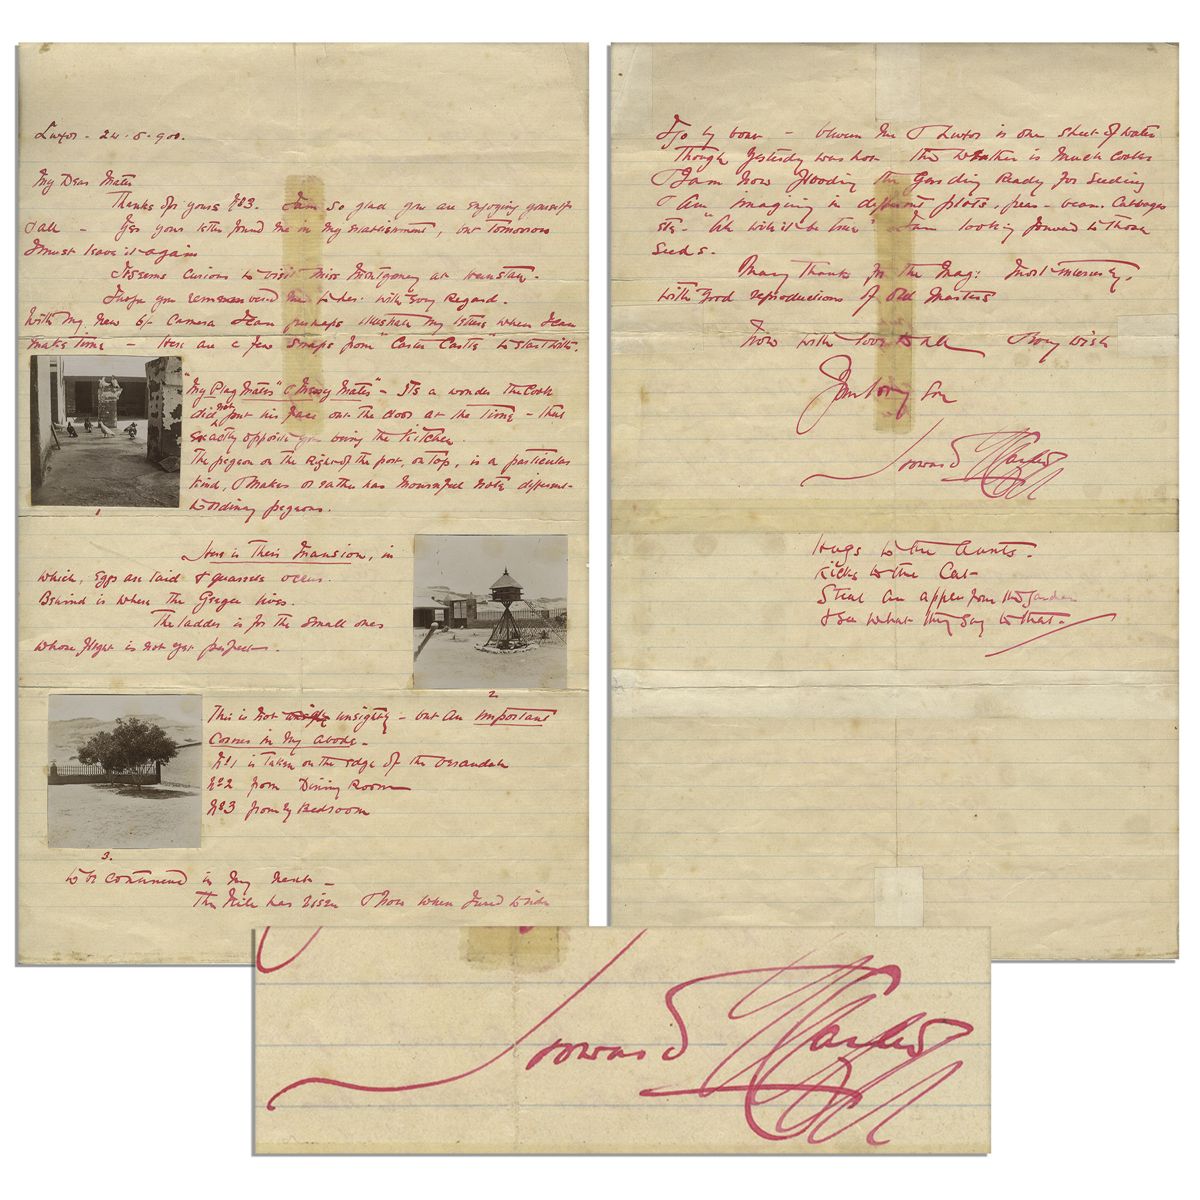 Luxor - 24.8.900.
My Dear Mater
Thanks for yours No3. I am so glad you are enjoying yourself
I all - Yes your letter found me in my establishment, but tomorrow
I must leave it again
It seems curious to visit Miss Montgomery at
I hope you remembered me to her: with Every Regard.
With my New 6/- Camera I can perhaps illustrate my letters when I can
make time - Here are a few snaps from "Castle Carter" to start with.
"My Play Mates" & Messy Mates" - Its a wonder the Cook
did not put his face out the door at the time - that
exactly opposite you being the Kitchen.
The pegeon on the Right of the post, on top, is a particular
kind, & makes or rather has mournful note different
to ordinary pegeons.
1
Here is Their Mansion, in
which, Eggs are laid & quarrels occur.
Behind is where the Gazelle lives.
The ladder is for the small ones
whose flight is not yet perfect.
2
This is not unsighty - but an important
Corner in my abode -
No1 is taken on the edge of the verandah
No2 from Dining Room
No3 from my Bedroom
3.
to be continued in my next -
The Nile has risen & now when I want to ride
I go by boat - between me & Luxor is one sheet of water
Though Yesterday was hot the weather is much cooler
I am now flooding the Garding Ready for Seeding
I am imagining in different plots, peas - beans. Cabbages
etc. "Ah will it be true" I am looking forward to those
Seeds.
Many Thanks for the Mag: Most interesting,
with good reproductions of Old Masters
Now with love to all & Every wish
from loving Son
Howard Carter
Hugs to the Aunts.
Kicks to the Cat -
Steal an apple from the Garden
& see what they say to that -
Howard Carter